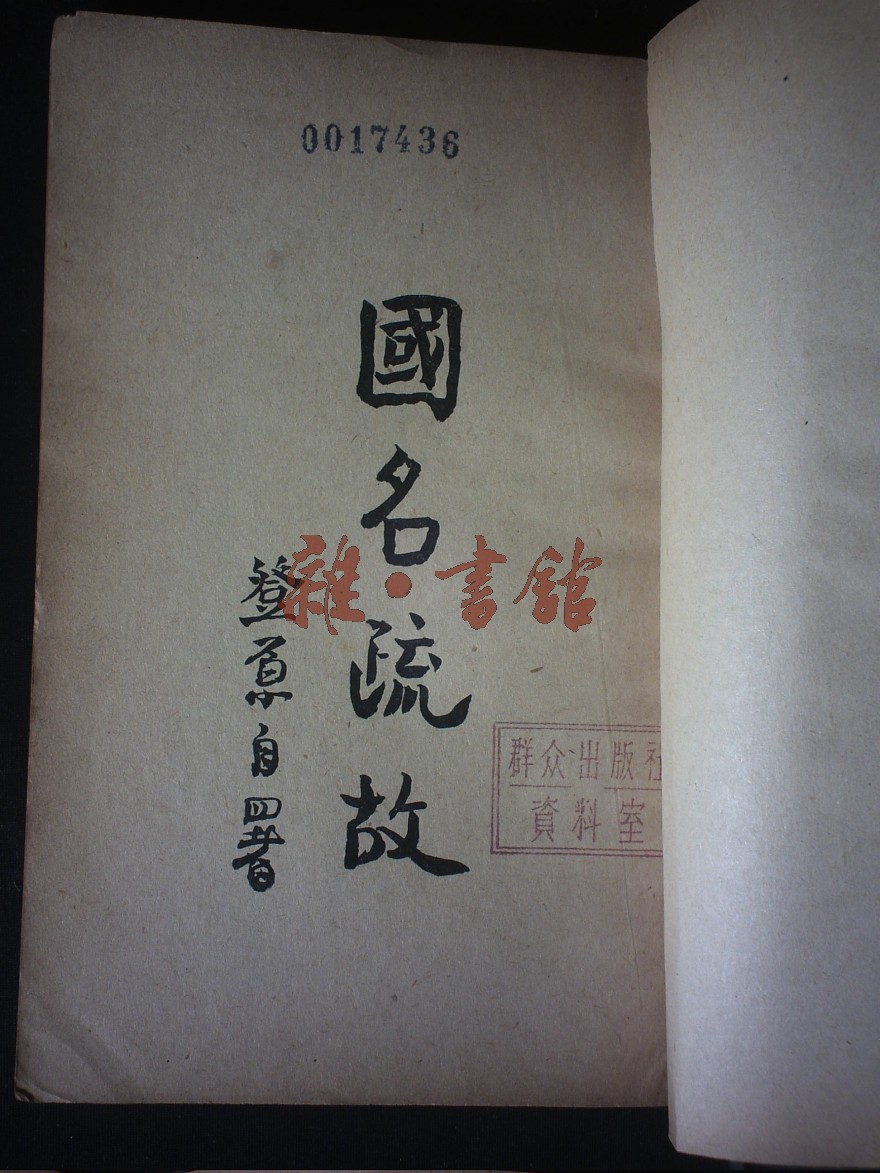 0017436
國名疏故
登原自署
雜·書館
群众出版社
資料室